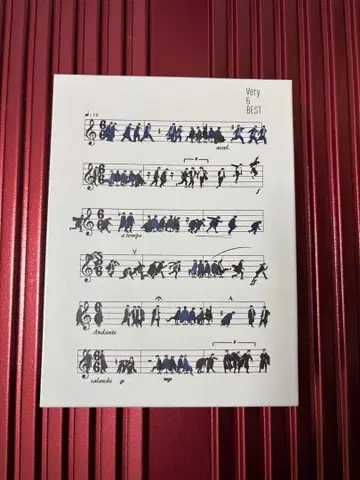 Very
6
BEST
accel.
3
f
a tempo
Andante
3
calando p mp